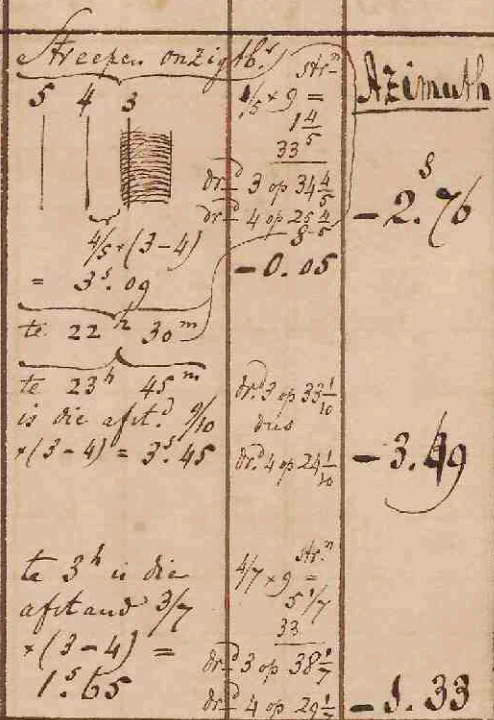 Streepen onzigtb.r
5 4 3
4/5 × (3-4)
= 3s.09
te 22h 30m
te 23h 45m
is die afst.d 9/10
×(3-4) = 3s.45
te 3h is die
afstand 3/7
×(3-4) =
1s.65
str.n
1/5 × 9 =
1 4/5
33
dr.d 3 op 34 4/5
dr.d 4 op 25 4/5
s
-0.05
dr.d 3 op 33 1/10
dus
dr.d 4 op 24 1/10
str.n
4/7 × 9 =
5 1/7
33
dr.d 3 op 38 1/7
dr.d 4 op 29 1/7
Azimuth
-2s.76
-3.49
-1.33